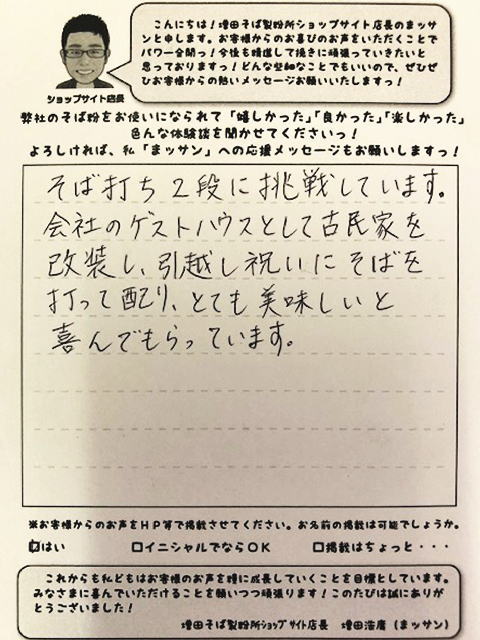 こんにちは!増田そば製粉所ショップサイト店長のまッサ
ンと申します。お客様からのお喜びのお声をいただくことで
パワー全開っ!今後も精進して挽きに頑張っていきたいと
思っておりますっ!どんな些細なことでもいいので、ぜひぜ
ひお客様からの熱いメッセージお願いいたしますっ!
ショップサイト店長
弊社のそば粉をお使いになられて「嬉しかった」「良かった」「楽しかった」
色んな体験談を聞かせてくださいっ!
よろしければ、私「まッサン」への応援メッセージもお願いしますっ!
そば打ち2段に挑戦しています。
会社のゲストハウスとして古民家を
改装し、引越し祝いにそばを
打って配り、とても美味しいと
喜んでもらっています。
※お客様からのお声をHP等で掲載させてください。お名前の掲載は可能でしょうか。
☑はい □イニシャルでならOK □掲載はちょっと・・・
これからも私どもはお客様のお声を糧に成長していくことを目標としています。
みなさまに喜んでいただけることを願いつつ頑張ります!このたびは誠にありが
とうございました!
増田そば製粉所ショップサイト店長 増田浩庸(まッサン)